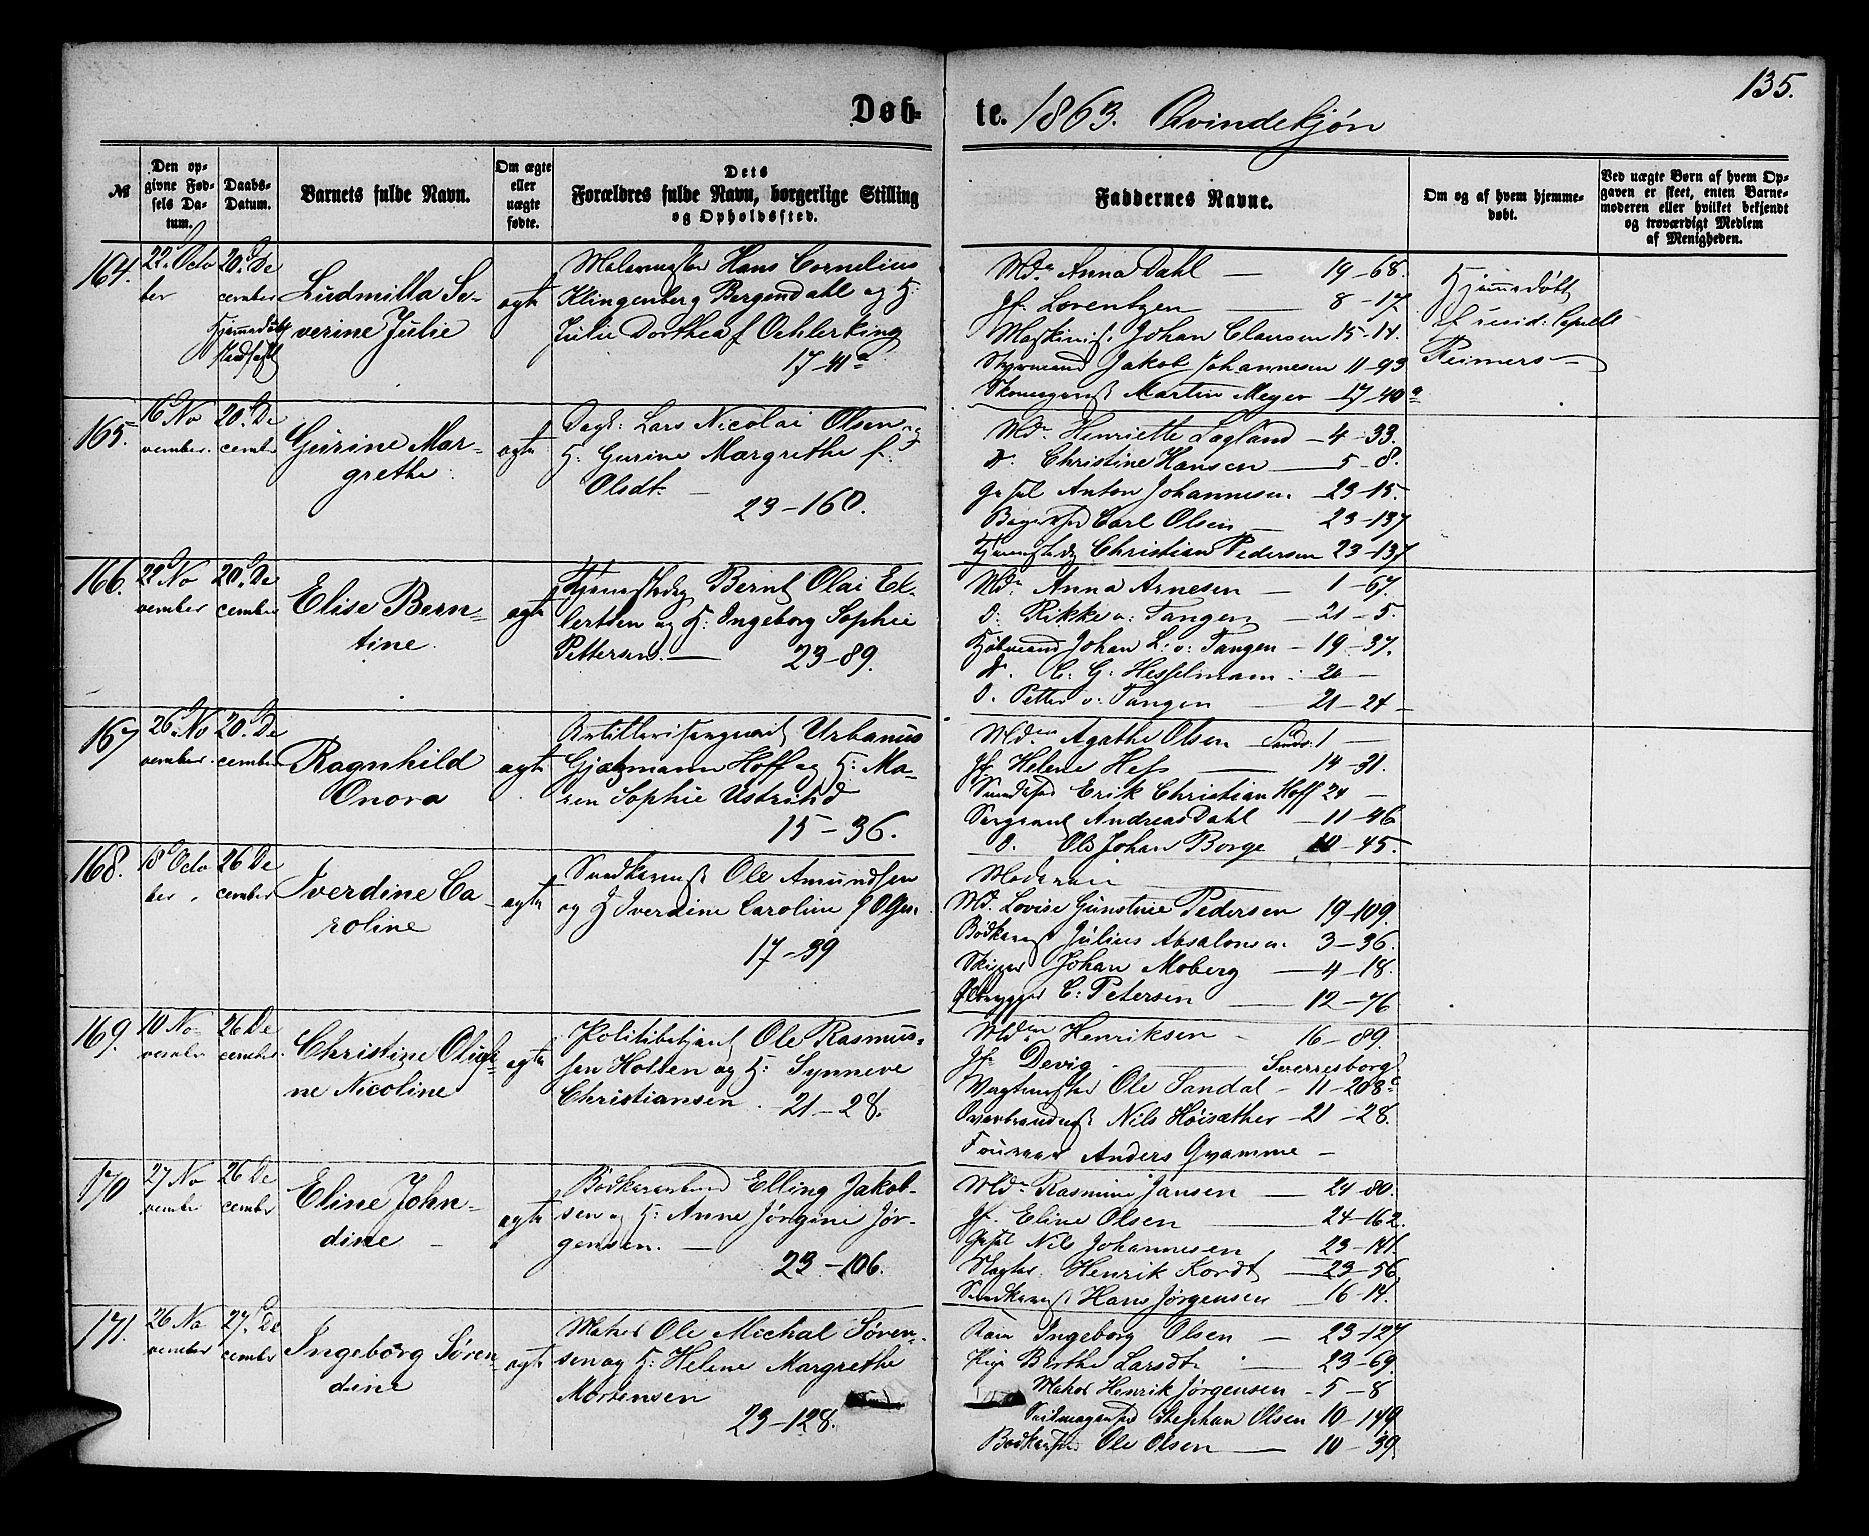 135.
Døb-
te. 1863. Qvindekjøn
№
Den op-
givne Fød-
sels Da-
tum.
Daabs-
Datum.
Barnets fulde Navn.
Om ægte
eller
uægte
fødte.
Dets
Forældres fulde Navn, borgerlige Stilling
og Opholdssted.
Faddernes Navne.
Om og af hvem hjemme-
døbt.
Ved uægte Børn af hvem Op-
gaven er skeet, enten Barne-
moderen eller hvilket bekjendt
og troværdigt Medlem
af Menigheden.
164.
22. Octo
ber
20. De
cember
Hjemmedøbt
stadfæst
Ludmilla Se-
verine Julie
ægte
Malermester Hans Cornelius
Klingenberg Bergendahl og H:
Julie Dorthea f Oehlerking
17-41a
Mda Anna Dahl — 19-68.
Jf. Lorentzen 8-17.
Maskinist Johan Clausen 15-14.
Styrmand Jakob Johannesen 11-93
Skomagerms Martin Meyer 17-40a
Hjemmedøbt
af resid: Capell:
Reimers
165.
16 No
vember.
20. De
cember
Gurine Mar-
grethe
ægte
Dagl: Lars Nicolai Olsen og
H. Gurine Margrethe f.
Olsdt. —
23-160.
Md. Henriette Lagland - 4-33.
d. Christine Hansen — 5-8.
Gesel Anton Johannesen 23-15.
Carl Olsen — 23-137
Christian Pedersen 23-137
166.
22 No
vember
20. De
cember
Elise Bern-
tine.
ægte
Bernt Olai El-
lertsen og H: Ingeborg Sophie
Pettersen. — 23-89.
Md. Anna Arnesen — 1-67.
d. Rikke v: Tangen — 21-5.
Kjøbmand Johan L. v: Tangen - 19-37.
d. C. G. Hesselmann : 20 —
d. Petter v: Tangen — 21-24
167
26. No
vember.
20. De
cember
Ragnhild
Onora
ægte
Artillerisergeant Urbanus
Gjætzmann Hoff og H: Ma-
ren Sophie Ustritid
15-36.
Mdm Agathe Olsen Sandv: 1 —
Jf Helene Hess — 14-31.
Erik Christian Hoff 24 —
Sergeant Andreas Dahl — 11-46
d. Ole Johan Borge 10-45.
168.
18 Octo
ber
26 De
cember
Iverdine Ca-
roline
ægte
Snedkersv Ole Amundsen
og H Iverdine Caroline f Olsen
17-39
Moderen
Md. Lovise Gunstine Pedersen 19-109.
Bødkersv Julius Absalonsen 3-36.
Skipper Johan Moberg — 4-18.
Ølbrygger C: Petersen 12-76
169.
10 No-
vember
26 De
cember
Christine Oluf-
ne Nicoline
ægte
Politibetjent Ole Rasmus-
sen Holten og H: Synneve
Christiansen. 21-28.
Mdm Henriksen - 16-89.
Jf: Devig Sverresborg
Vagtmester Ole Sandal - 11-208c
Overbrandmst Nils Høisæther - 21-28.
Fourer Anders Gramme -
170
27 No
vember
26 De
cember
Eline John-
dine —
ægte
Bødkersvend Elling Jakob-
sen og H: Anne Jørgine Jør-
gensen. —
23-106.
Mda Rasmine Jansen — 24-80.
Jf. Eline Olsen — 24-162.
Gesel Nils Johannesen 23-141.
Slagter. Henrik Kordt 23-56
Hans Jørgensen - 16-14.
171.
26 No
vember
27. De
cember
Ingeborg Søren-
dine
ægte
Matros Ole Michal Søren-
sen og H: Helene Margrethe
Mortensen
23-128.
Kone Ingeborg Olsen — 23-127
Pige Berthe Larsdt. — 23-69.
Matros Henrik Jørgensen - 5-8
Stephan Olsen 10-149.
Ole Olsen — 10-39.